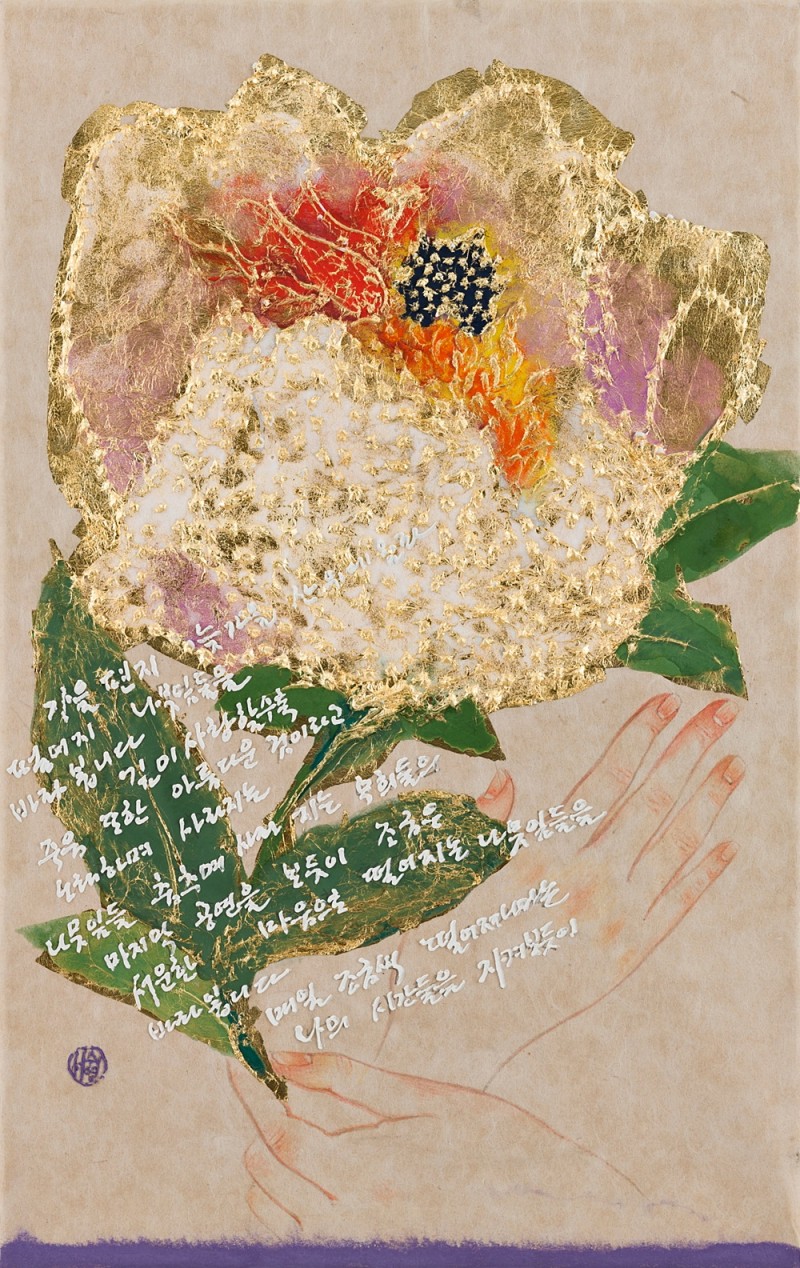 가을 편지 늦가을 산 위에 올라
떨어지 나뭇잎들을
바라봅니다 깊이 사랑할수록
죽음 또한 아름다운 것이라고
노래하며 사라지는
나뭇잎들 춤추며 사라지는 무희들의
마지막 공연을 보듯이 조금은
서운한 마음으로 떨어지는 나뭇잎들을
바라봅니다
매일 조금씩 떨어져나가는
나의 시간들을 지켜보듯이